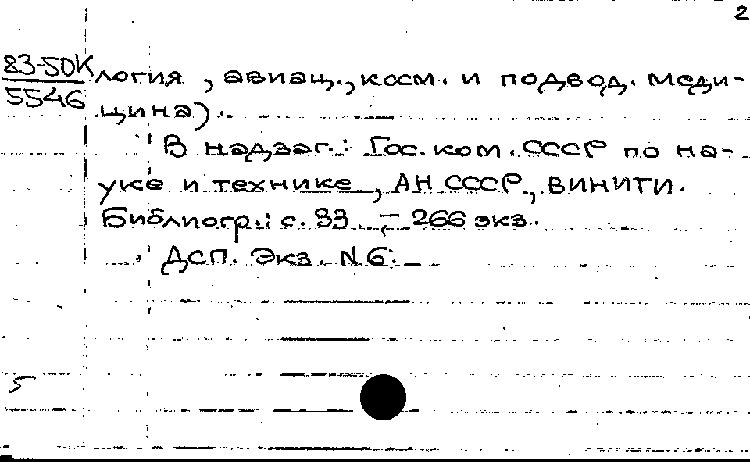 2
83-5DK
5546
логия, авиац., косм. и подвод. меди-
цина).
В надзаг.: Гос. ком. СССР по на-
уке и технике, АН СССР, ВИНИТИ.
Библиогр.: с. 83. – 266 экз.
Дсп. Экз. N 6.
5